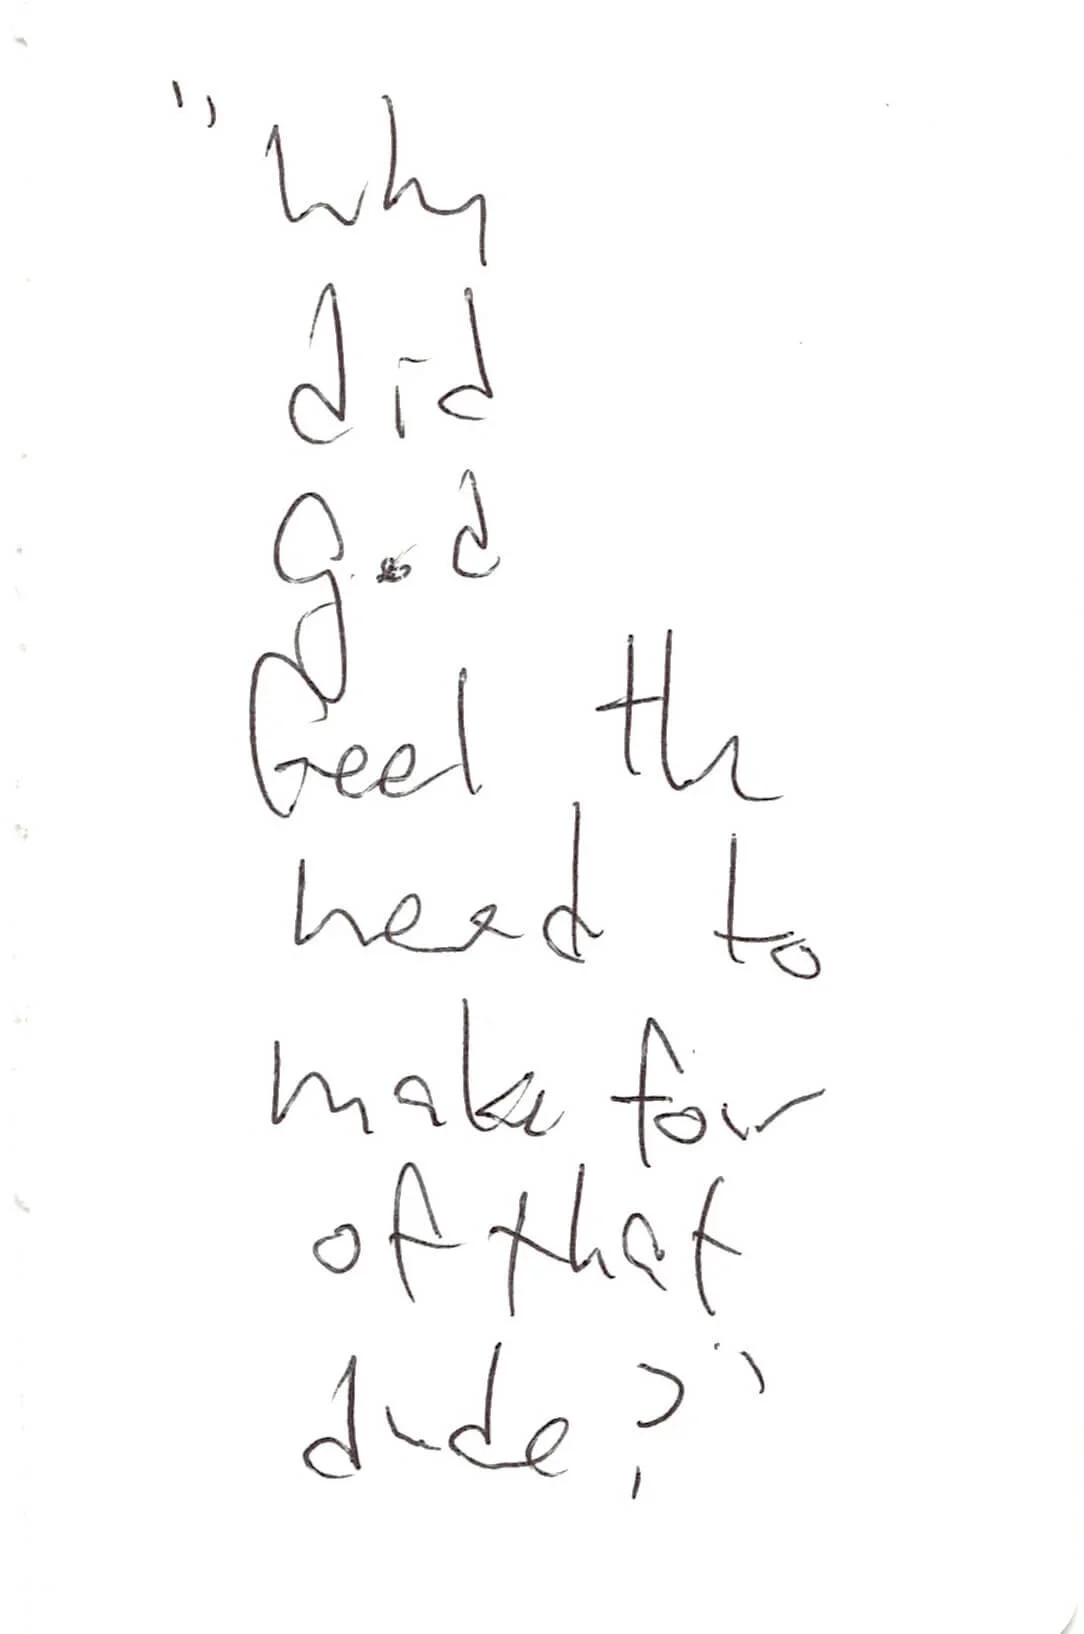 "Why
did
god
feel the
need to
make four
of that
dude?"